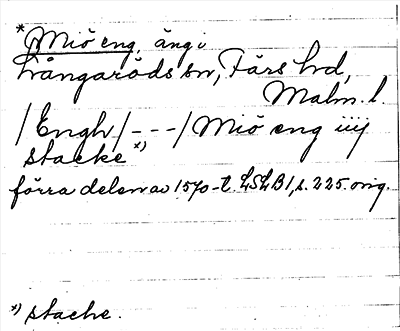 *Miö eng, äng i
Långaröds sn, Färs hd,
Malm. l.
/Engh/---/Miö eng iiij
stacke *)
förra delen av 1570-t. LSLB1, s. 225. orig.
*) stacke.